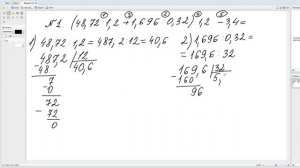 ① ③ ② ④ ⑤
№1. (48,72:1,2+1,696:0,32)·1,2 - 3,4=
1) 48,72:1,2=487,2:12=40,6
2) 1,696:0,32=
=169,6:32
487,2 | 12
-48 | 40,6
7
-0
72
-72
0
169,6 | 32
-160 | 5,
96